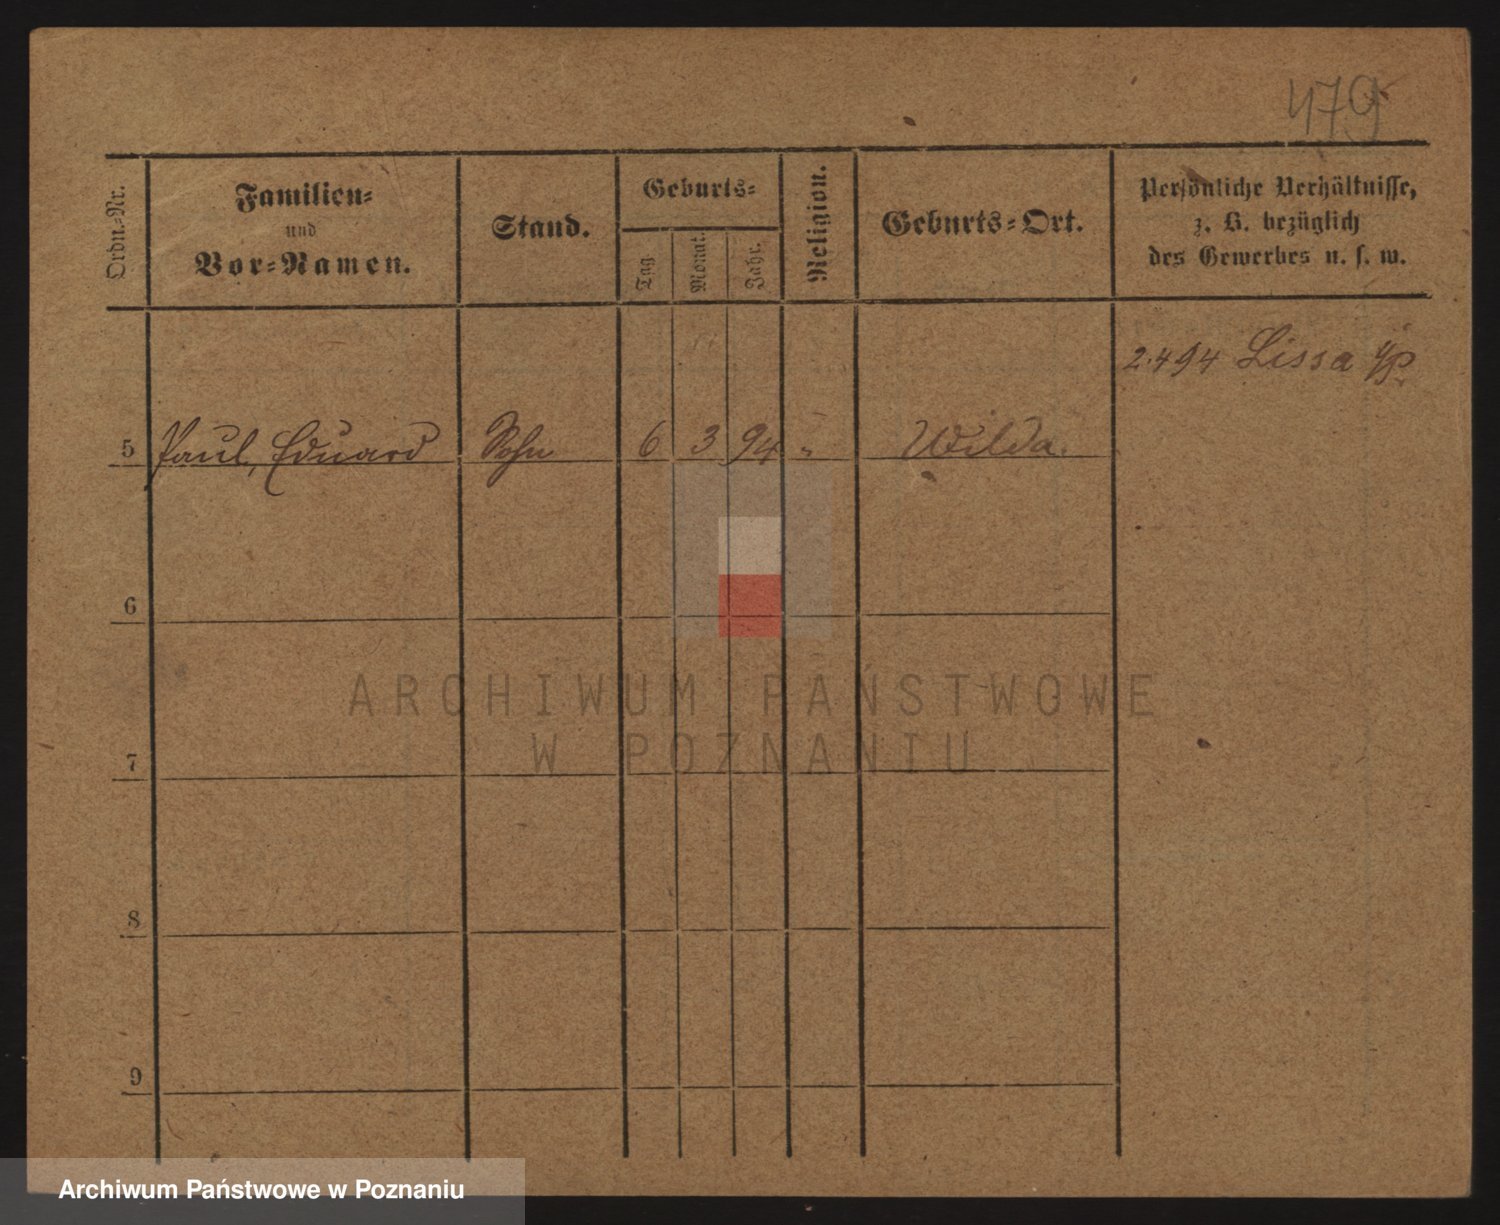 479
Ordn.-Nr.
Familien-
und
Vor-Namen.
Stand.
Geburts-
Tag.
Monat.
Jahr.
Religion.
Geburts-Ort.
Persönliche Verhältnisse,
z. B. bezüglich
des Gewerbes u. s. w.
2.4 94 Lissa i/P.
5 Paul, Eduard Sohn 6 3 94 " Wilda.
6
7
8
9
ARCHIWUM PAŃSTWOWE
W POZNANIU
Archiwum Państwowe w Poznaniu